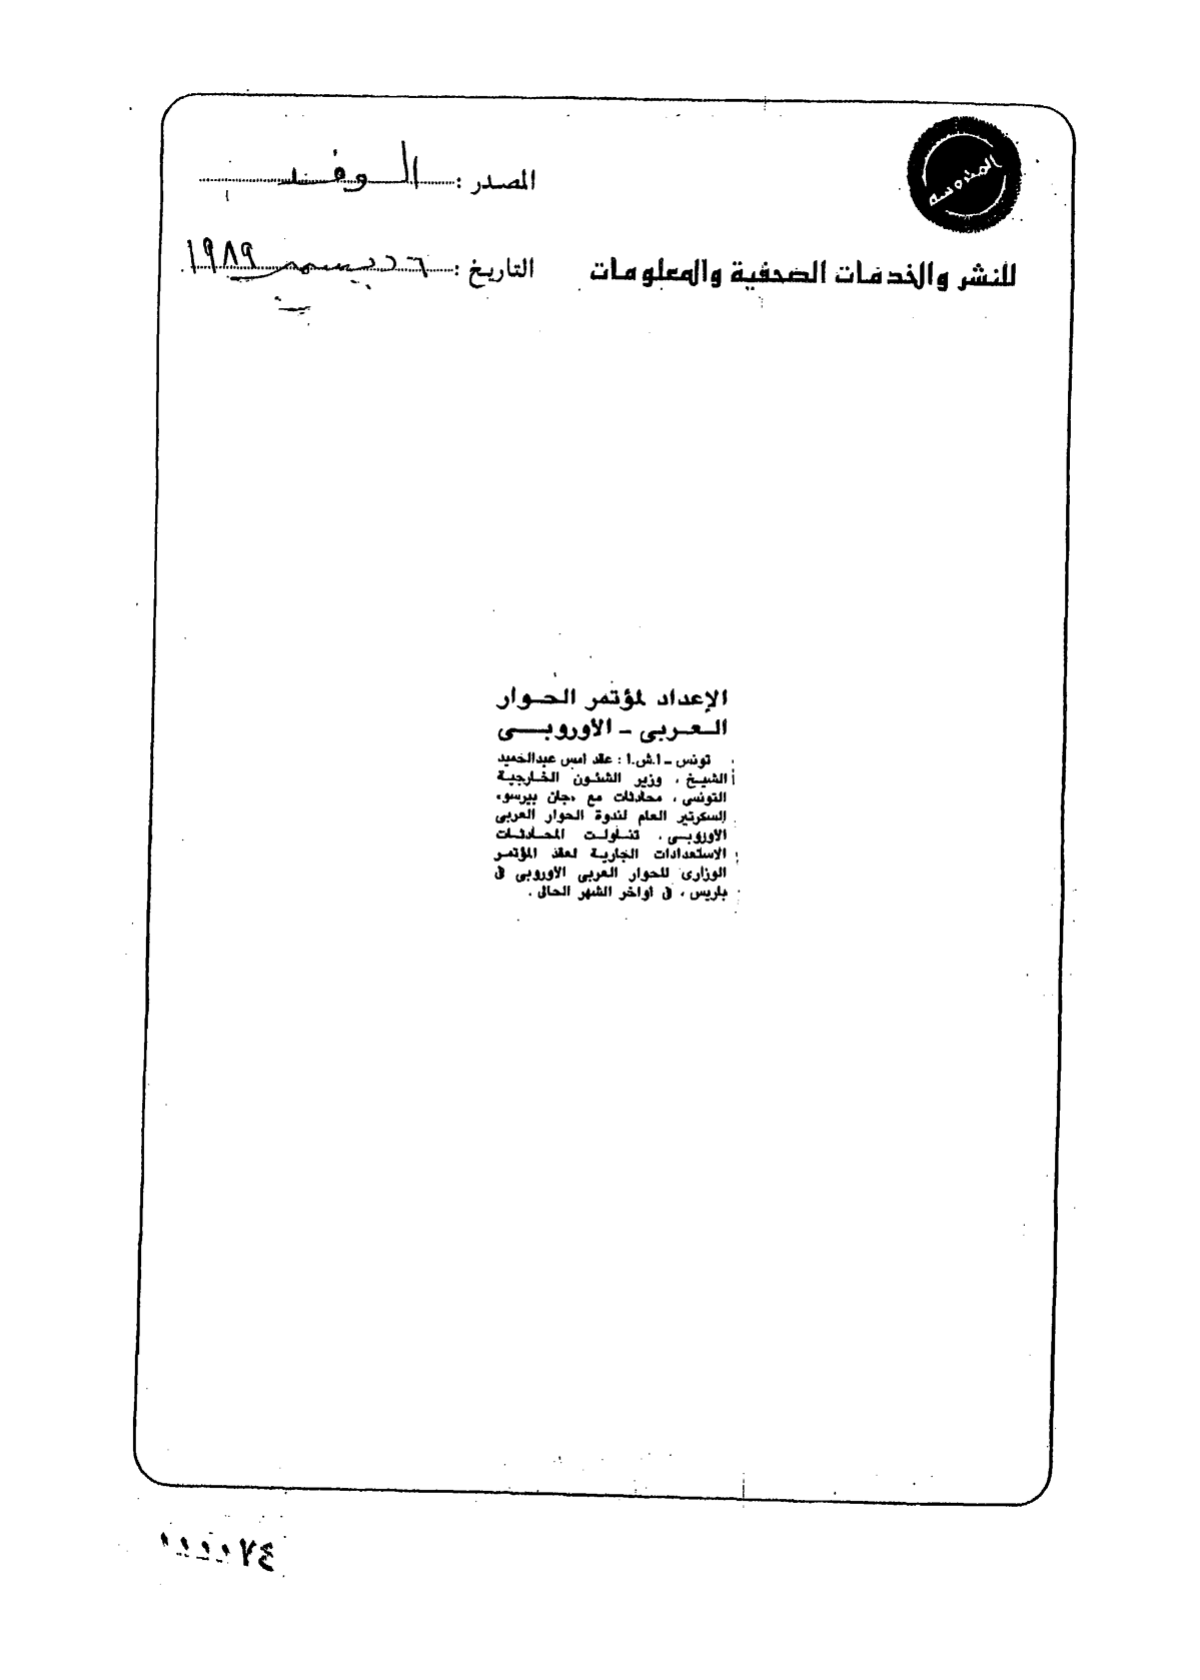 المصدر : الوفد
للنشر والخدمات الصحفية والمعلومات
التاريخ : ٦ ديسمبر ١٩٨٩
الإعداد لمؤتمر الحوار
العربى - الأوروبى
تونس - ا.ش.ا : عقد امس عبدالحميد
الشيخ ، وزير الشئون الخارجية
التونسى ، محادثات مع «جان بيرسو»
السكرتير العام لندوة الحوار العربى
الأوروبى . تناولت المحادثات
الاستعدادات الجارية لعقد المؤتمر
الوزارى للحوار العربى الأوروبى فى
باريس ، فى أواخر الشهر الحالى .